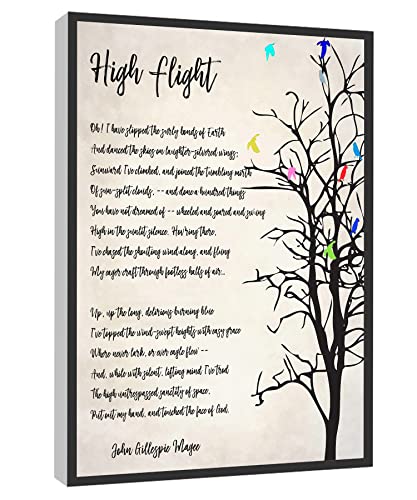 High Flight
Oh! I have slipped the surly bonds of Earth
And danced the skies on laughter-silvered wings;
Sunward I've climbed, and joined the tumbling mirth
Of sun-split clouds, -- and done a hundred things
You have not dreamed of -- wheeled and soared and swung
High in the sunlit silence. Hov'ring there,
I've chased the shouting wind along, and flung
My eager craft through footless halls of air...
Up, up the long, delirious burning blue
I've topped the wind-swept heights with easy grace
Where never lark, or ever eagle flew --
And, while with silent, lifting mind I've trod
The high untrespassed sanctity of space,
Put out my hand, and touched the face of God.
John Gillespie Magee